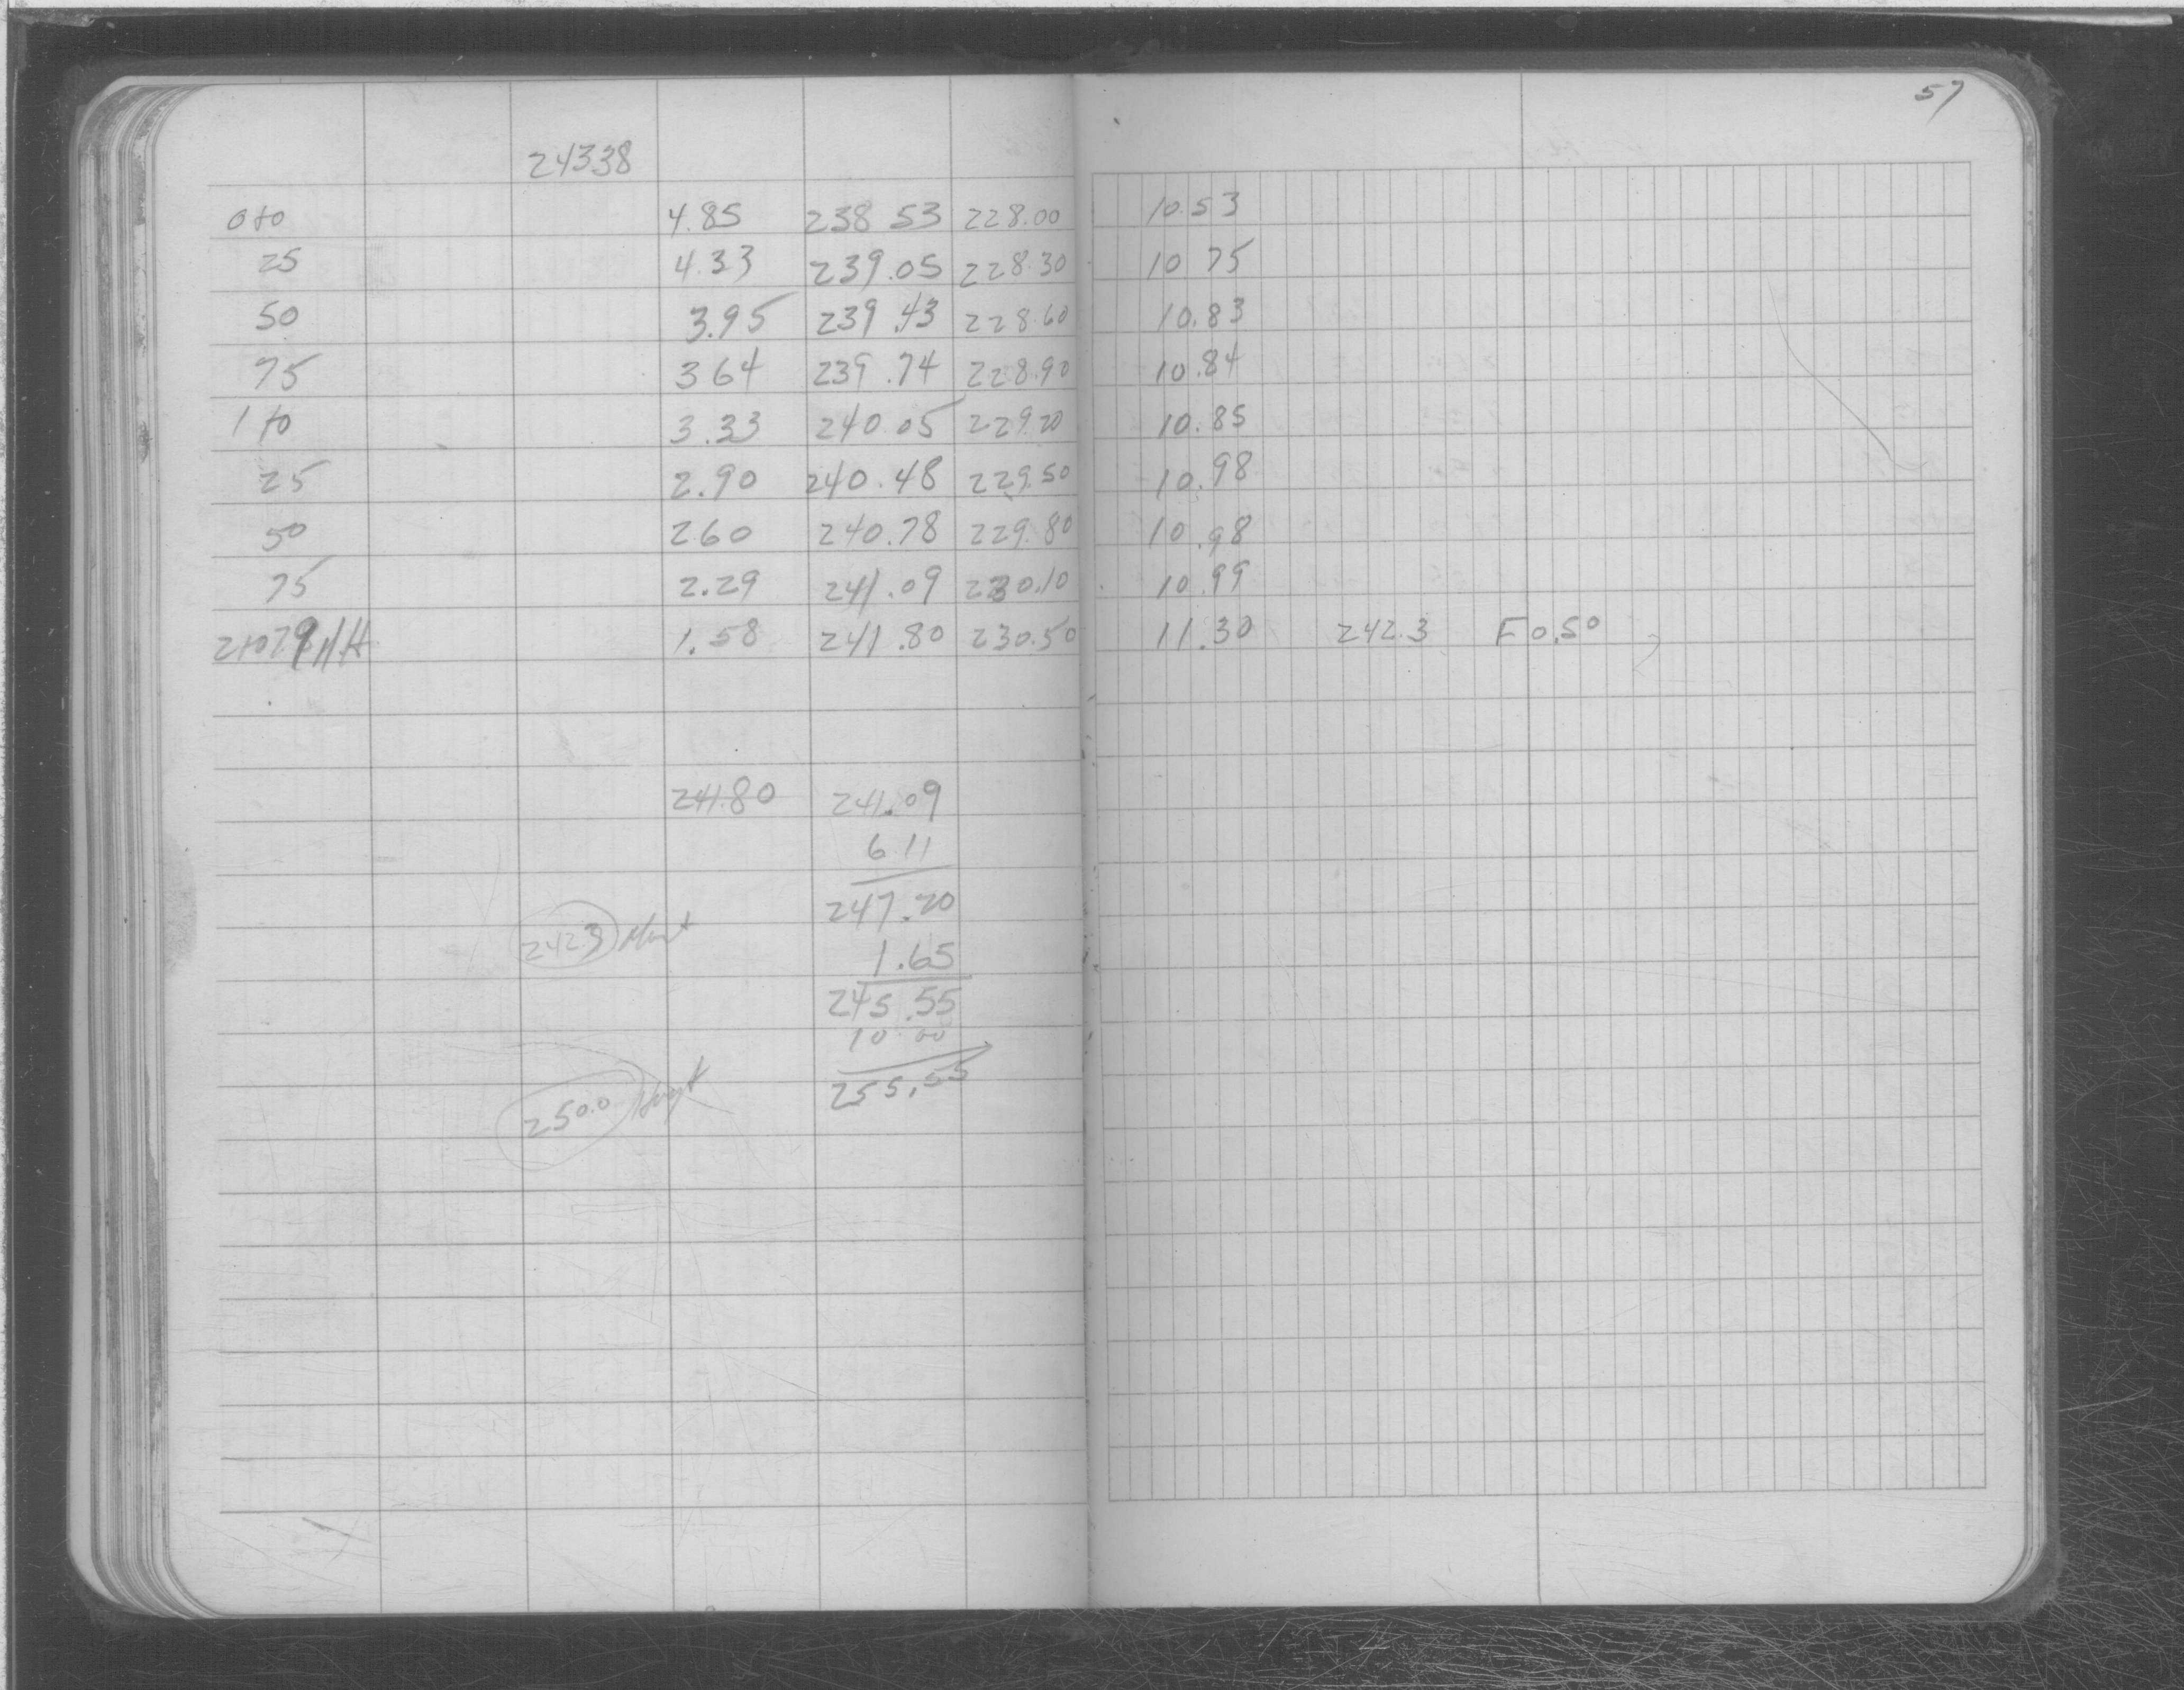 57
24338
0+0 4.85 238 53 228.00 10.53
25 4.33 239.05 228.30 10 75
50 3.95 239.43 228.60 10.83
75 3 64 239.74 228.90 10.84
1+0 3.33 240.05 229.20 10.85
25 2.90 240.48 229.50 10.98
50 2 60 240.78 229.80 10.98
75 2.29 241.09 230.10 10.99
1.58 241.80 230.50 11.30 242.3 F 0.50
241.80 241.09
6 11
247.20
242.3
1.65
245.55
10.00
250.0 255.55